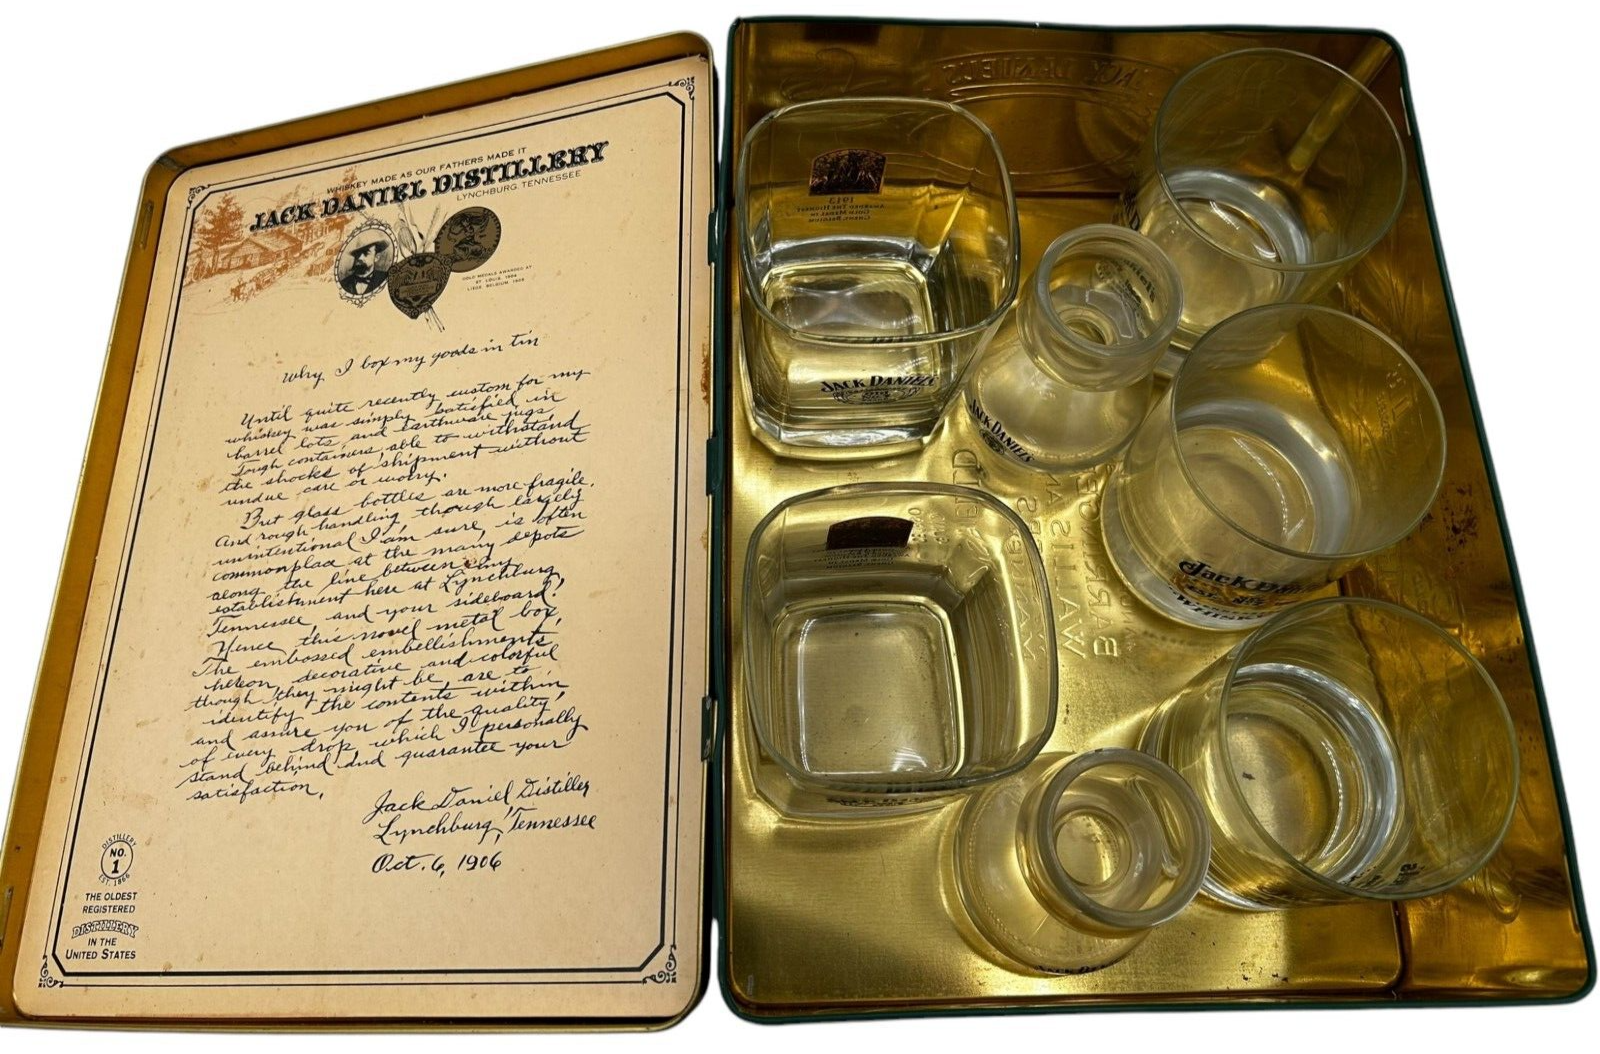 WHISKEY MADE AS OUR FATHERS MADE IT
JACK DANIEL DISTILLERY
LYNCHBURG, TENNESSEE
GOLD MEDALS AWARDED AT
ST. LOUIS, 1904
LIEGE, BELGIUM, 1905
Why I box my goods in tin
Until quite recently custom for my
whiskey was simply satisfied in
barrel lots and earthware jugs,
Tough containers, able to withstand
the shocks of shipment without
undue care or worry.
But glass bottles are more fragile.
And rough handling though largely
unintentional I am sure, is often
commonplace at the many depots
along the line between my
establishment here at Lynchburg,
Tennessee, and your sideboard!
Hence this novel metal box,
The embossed embellishments
hereon, decorative and colorful
though they might be, are to
identify the contents within
and assure you of the quality
of every drop which I personally
stand behind and guarantee your
satisfaction.
Jack Daniel, Distiller
Lynchburg, Tennessee
Oct. 6, 1906
DISTILLERY
NO.
1
EST. 1866
THE OLDEST
REGISTERED
DISTILLERY
IN THE
UNITED STATES
JACK DANIEL'S
1913
AWARDED THE HIGHEST
GOLD MEDAL IN
GHENT, BELGIUM
JACK DANIEL'S
JACK DANIEL'S
Jack
WHISKEY